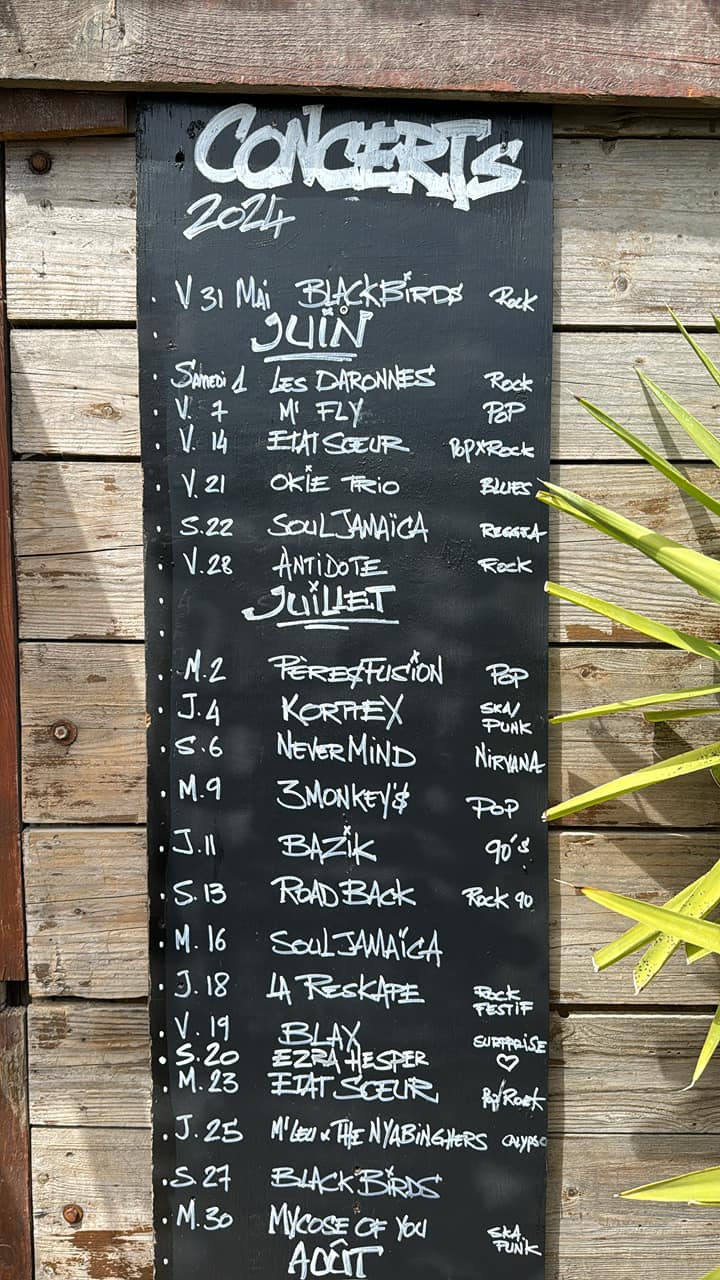 CONCERTS
2024
V 31 MAI BLACKBIRDS Rock
JUIN
SAMEDI 1 LES DARONNES Rock
V. 7 M' FLY POP
V. 14 ETAT SOEUR POP x Rock
V. 21 OKIE TRIO BLUES
S. 22 SOUL JAMAÏCA REGGEA
V. 28 ANTIDOTE Rock
JUILLET
M. 2 PÈRES FUSION POP
J. 4 KORTTEX SKA/
PUNK
S. 6 NEVERMIND NIRVANA
M. 9 3MONKEY'S POP
J. 11 BAZIK 90's
S. 13 ROAD BACK Rock 90
M. 16 SOUL JAMAÏCA
J. 18 LA RESKAPE Rock
FESTIF
V. 19 BLAX SURPRISE
S. 20 EZRA HESPER ♡
M. 23 ETAT SOEUR Pop/Rock
J. 25 M'LEU x THE NYABINGHERS CALYPSO
S. 27 BLACKBIRDS
M. 30 MYCOSE OF YOU SKA
PUNK
AOÛT